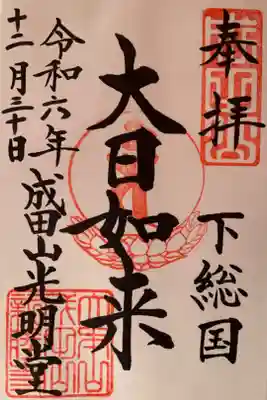 奉拝
下総国
大日如来
令和六年
十二月三十日
成田山光明堂